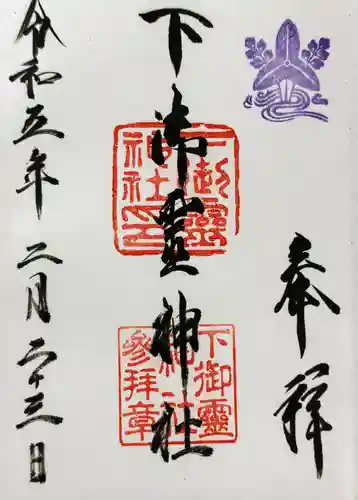 奉拝
下御靈神社
下御靈
神社印
下御靈
神社
参拜章
令和五年二月二十三日